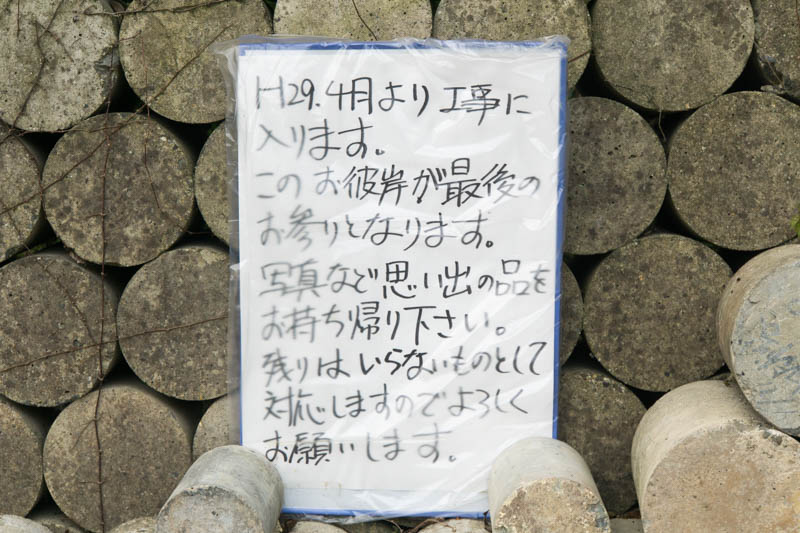 H29.4月より工事に
入ります。
このお彼岸が最後の
お参りとなります。
写真など思い出の品を
お持ち帰り下さい。
残りはいらないものとして
対応しますのでよろしく
お願いします。